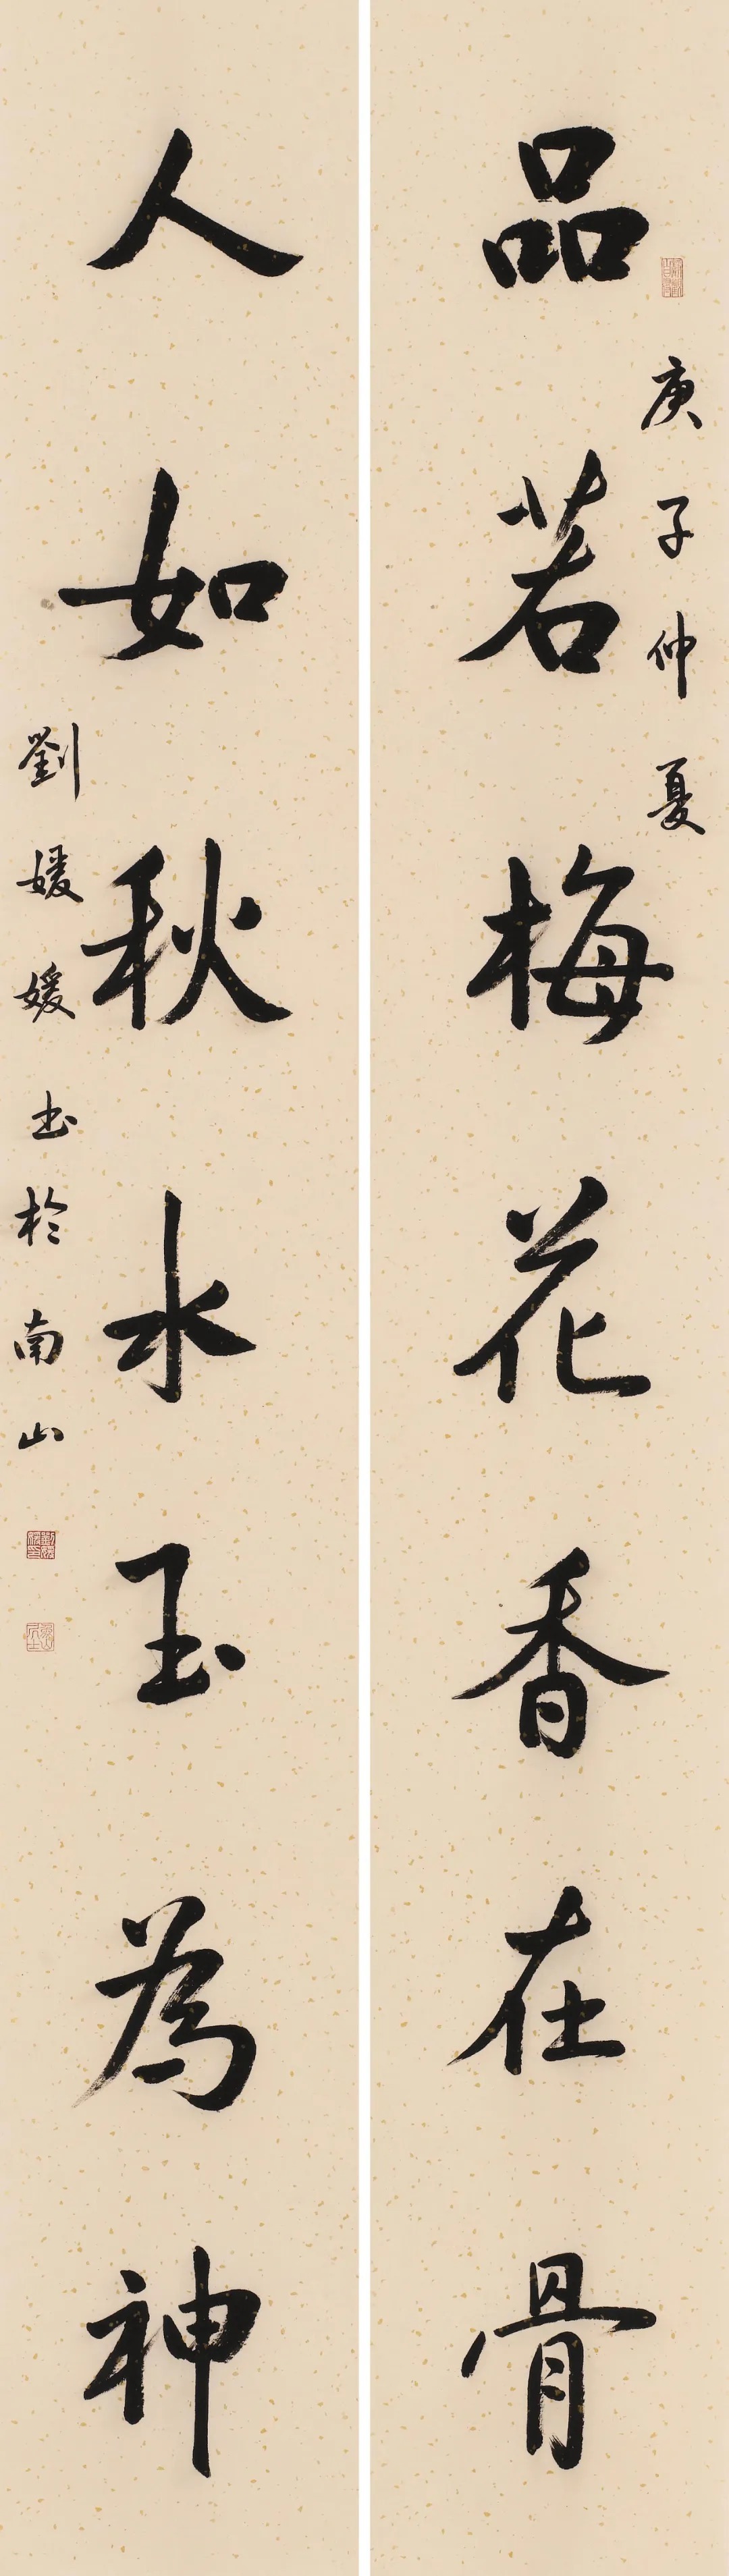 品若梅花香在骨
庚子仲夏
人如秋水玉為神
劉媛媛书於南山